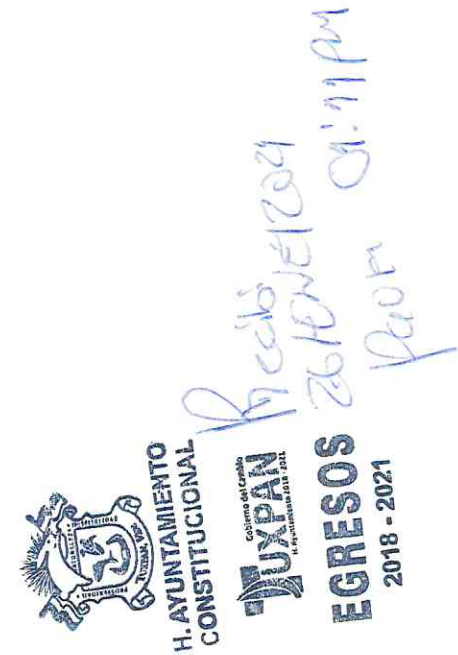 H. AYUNTAMIENTO
CONSTITUCIONAL
TUXPAN
Gobierno del Cambio
H. Ayuntamiento 2018 - 2021
EGRESOS
2018 - 2021
Recibió
26/ENE/2021
01:11 PM